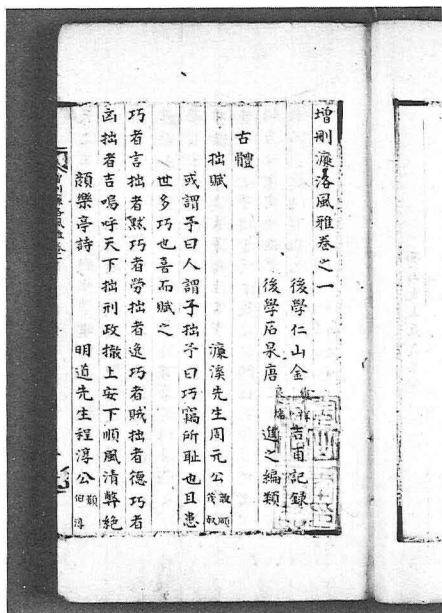 增刪濂洛風雅卷之一
後學仁山金 吉甫記錄
後學石泉唐 進之編類
古體
拙賦 濂溪先生周元公 敦頤 茂叔
或謂予曰人謂予拙予曰巧竊所恥也且患
世多巧也喜而賦之
巧者言拙者默巧者勞拙者逸巧者賊拙者德巧者
凶拙者吉嗚呼天下拙刑政撤上安下順風清弊絶
顏樂亭詩 明道先生程淳公 顥 伯淳